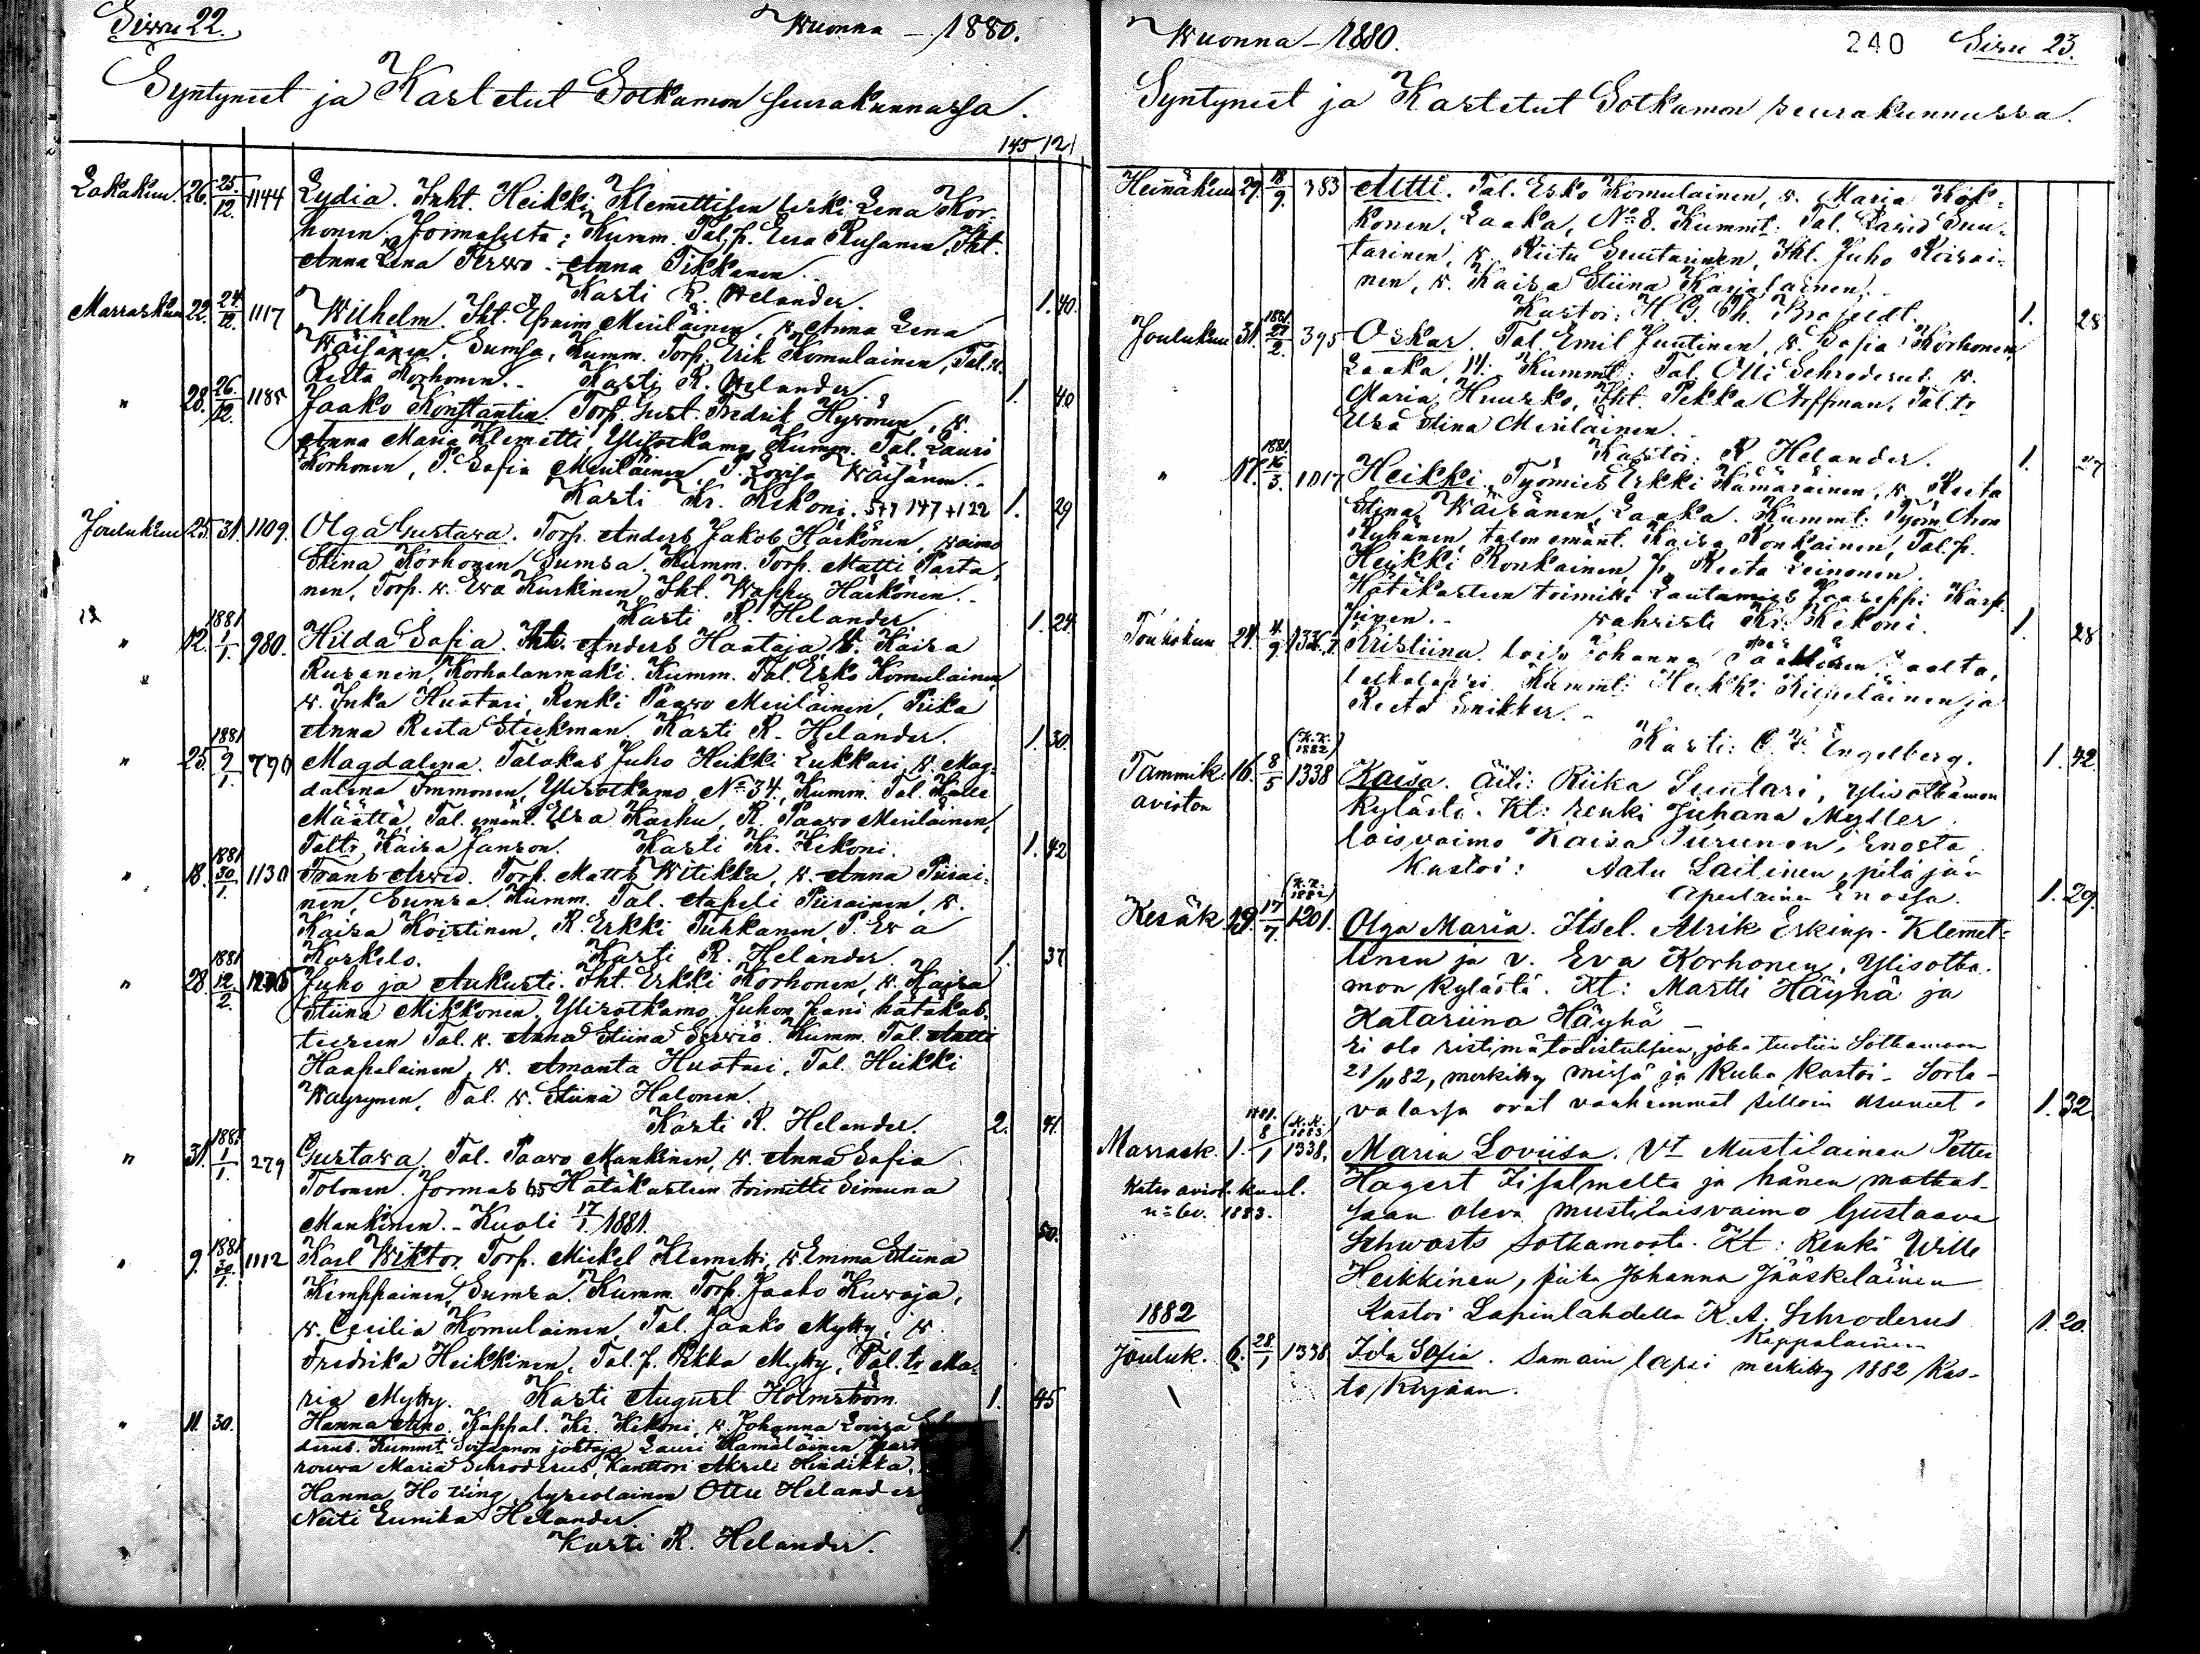 Sivu 22.
Wuonna - 1880.
Syntyneet ja Kastetut Sotkamon seurakunnassa.
145 121
Lokakuu. 26. 25/12. 1144 Lydia. Iht. Heikki Klemettisen leski Lena Kor-
honen. Jormaselta; Kumm. Tal. p. Eva Rusanen, Iht.
Anna Lena Terwo. Anna Pikkanen.
Kasti R. Helander. 1. 40.
Marraskuu 22. 24/12. 1117 Wilhelm. Iht. Efraim Meriläinen, w. Anna Lena
Wäisänen. Sumsa, Kumm. Torp. Erik Komulainen, Tal. w.
Reeta Korhonen. - Kasti R. Helander. 1. 40
" 28. 26/12. 1185 Jaako Konstantin. Torp. Gust. Fredrik Hyvönen, w.
Anna Maria Klemetti, Ylisotkamo, Kumm. Tal. Lauri
Korhonen, P. Sofia Meriläinen, P. Lovisa Wäisänen.-
Kasti Kr. Kekoni. 5+1 147+122 1. 29
Joulukuu 25. 31. 1109. Olga Gustava. Torp. Anders Jakob Härkönen, waimo
Stina Korhonen, Sumsa. Kumm. Torp. Matti Parta-
nen, Torp. w. Eva Kurkinen, Iht. Wappu Härkönen.-
Kasti R. Helander. 1. 24.
" 12. 1881 1/1. 980. Hilda Sofia. Iht. Anders Haataja, w. Kaisa
Rusanen, Korholanmäki. Kumm. Tal. Esko Komulainen,
w. Inka Huotari, Renki Paavo Meriläinen, Piika
Anna Reeta Stickman. Kasti R. Helander. 1. 30.
" 25. 1881 9/1. 790 Magdalena. Talokas Juho Heikki Lukkari, w. Mag-
dalena Immonen, Ylisotkamo No 34. Kumm. Tal. Kalle
Määttä, Tal. emänt. Eva Karhu, R. Paavo Meriläinen,
Taltr. Kaisa Janson. Kasti Kr. Kekoni. 1. 42
" 18. 1881 30/1. 1130 Frans Arvid. Torp. Matts Witikka, w. Anna Piirai-
nen, Sumsa. Kumm. Tal. Aapeli Piirainen, w.
Kaisa Koistinen, R. Erkki Tuhkanen, P. Eva
Korkelo. Kasti R. Helander. 1. 37
" 28. 1881 12/2. Juho ja Aukusti. Iht. Erkki Korhonen, w. Kaisa
Stiina Mikkonen. Ylisotkamo. Juhon pani hätäkas-
teesen Tal. w. Anna Stiina Servio. Kumm. Tal. Antti
Haapalainen, w. Amanta Huotari, Tal. Heikki
Wäyrynen, Tal. w. Stiina Halonen.
Kasti R. Helander. 2. 41.
" 31. 1881 1/1. 279 Gustava. Tal. Paavo Mankinen, w. Anna Sofia
Tolonen. Jormas 65 Hätäkasteen toimitti Simuna
Mankinen. - Kuoli 17/1 1881. 50.
" 9. 1881 30/1. 1112 Karl Wiktor. Torp. Mickel Klemetti, w. Emma Stiina
Kemppainen, Sumsa. Kumm. Torp. Jaako Kuvaja,
w. Cecilia Komulainen, Tal. Jaako Mykky, w.
Fredrika Heikkinen, Tal. p. Pekka Mykky, Tal. tr Ma-
ria Mykky. Kasti August Holmström. 1. 45
" 11. 30. Hanna Aino. Kappal. Kr. Kekoni, w. Johanna Lovisa
derus. Kummit. Soitannon johtaja Lauri Hämäläinen
rouva Maria Schroderus, Kanttori Akseli Hindikka,
Hanna, lyseolainen Ottu Helander
Neiti Eunika Helander.
Kasti R. Helander. 1.
Wuonna - 1880.
240 Sivu 23.
Syntyneet ja Kastetut Sotkamon seurakunnassa.
Heinäkuu 29. 18/9. 383 Antti. Tal. Esko Komulainen, w. Maria Kok-
konen, Laaka, No 8. Kummit: Tal. David Suu-
tarinen, w. Riitu Suutarinen, Iht. Juho Koivai-
nen, w. Kaisa Stiina Karjalainen.
Kastoi: H. G. Th. Brofeldt. 1. 28
Joulukuu 31. 1881 27/2. 395 Oskar. Tal. Emil Juntinen, w. Sofia Korhonen,
Laaka, 11. Kummit: Tal. Olli Schroderus, w.
Maria Huusko, Iht. Pekka Hoffman, Tal. tr
Eva Stina Meriläinen.
Kastoi: R. Helander. 1. 27
" 17. 1881 16/3. 1017 Heikki. Työmies Erkki Hämäräinen, w. Reeta
Stina Wäisänen, Laaka. Kummit: Työm. Aron
Ryhänen, talon emänt. Kaisa Ronkainen, Tal. p.
Heikki Ronkainen, p. Reeta Leinonen.
Hätäkasteen toimitti Lautamies Jooseppi Karp-
pinen. - wahvisti Kr. Kekoni. 1. 28
Toukokuu 24. 4/9 Kristiina. lois. Johanna
Kummit: Heikki Kilpeläinen ja
Reeta Snikker.-
Kasti: C. F. Engelberg. 1. 42
Tammik. 16. (K.K. 1882) 8/5 1338 Kaisa. Äiti: Riika Suutari, Ylisotkamon
aviton kylästä. Kt: renki Juhana Myller.
loisvaimo Kaisa Turunen, Enosta
Kastoi: Aatu Laitinen, pitäjän
apulainen Enossa. 1. 29.
Kesäk 19. (K.K. 1882) 17/7. 1201. Olga Maria. Itsel. Alrik Erkinp. Klemet-
tinen ja v. Eva Korhonen, Ylisotka-
mon kylästä. Kt: Martti Häyhä ja
Katariina Häyhä -
ei ole ristimätodistuksen, joka tuotiin Sotkamoon
21/11 82, merkitty missä ja kuka kastoi. Sorta-
valassa ovat vanhemmat silloin asuneet. 1. 32.
Marrask. 1. 1881. 8/1 (K.K. 1883) 1338. Maria Loviisa. Vt Mustilainen Petter
Katso aviot. kuul. Hagert Iisalmelta ja hänen matkas-
n:o 60. 1883. saan oleva mustilaisvaimo Gustaava
Schwarts Sotkamosta. Kt: Renki Wille
Heikkinen, piika Johanna Jääskeläinen
Kastoi Lapinlahdella K. A. Schroderus 1. 20.
Kappalainen
1882
Jouluk. 6. 28/1 1338 Ida Sofia. Samain lapsi merkitty 1882 Kas-
te kirjaan.